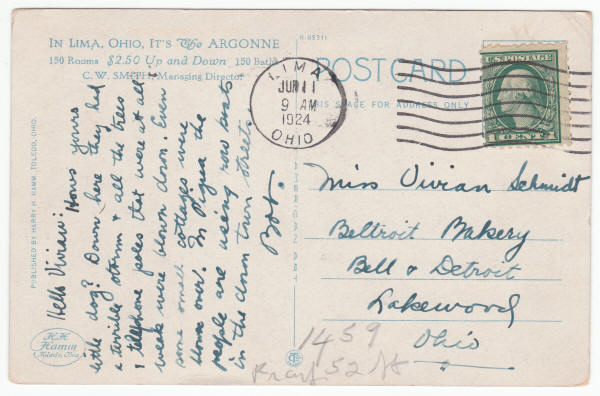 IN LIMA, OHIO, IT'S The ARGONNE
150 Rooms $2.50 Up and Down 150 Baths
C. W. SMITH, Managing Director
R-95311
POST CARD
THIS SPACE FOR ADDRESS ONLY
LIMA
JUN 11
9 AM
1924
OHIO
U.S. POSTAGE
1 CENT 1
Hello Vivian: Hows yours
little dog? Down here they had
a terrible storm & all the trees
& telephone poles that were at all
weak were blown down. Even
some small cottages were
blown over. In Piqua the
people are using row boats
in the down town streets.
Bob.
Miss Vivian Schmidt
Beltroit Bakery
Bell & Detroit
Lakewood
Ohio
1459
52 St
PUBLISHED BY HARRY H. HAMM, TOLEDO, OHIO.
H.H. Hamm
Toledo, Ohio